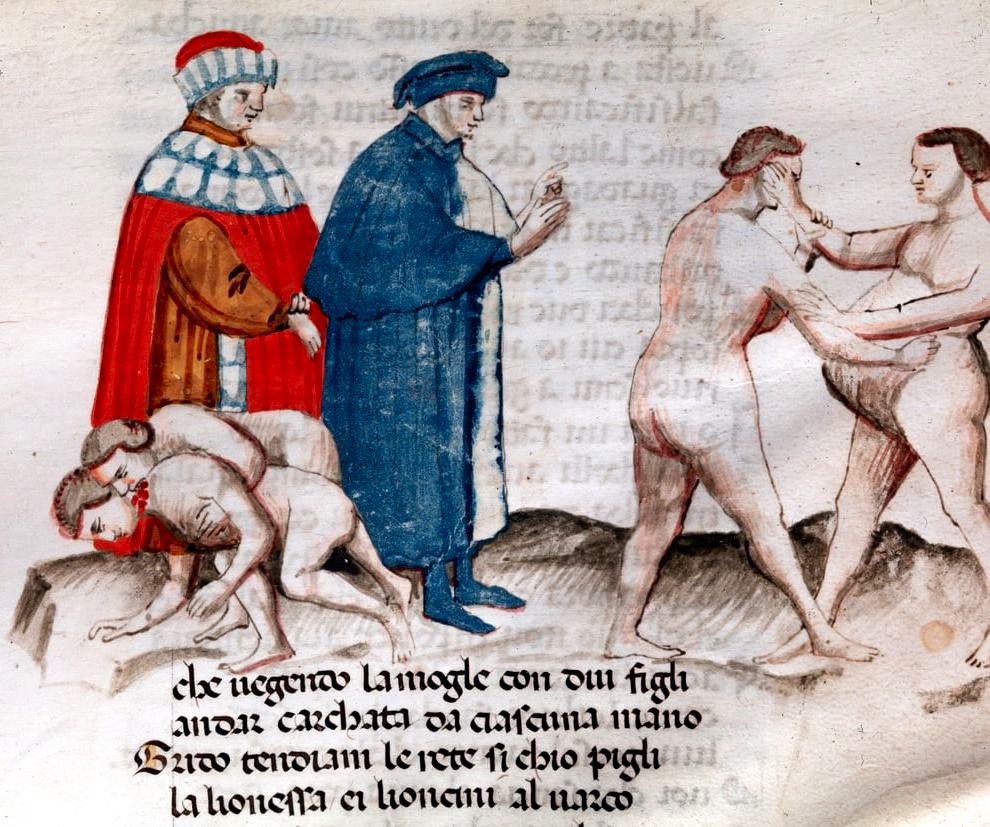 che uegendo la mogle con dui figli
andar carchata da ciascuna mano
Grido tendiam le rete si chio pigli
la lionessa ei lioncini al uarco